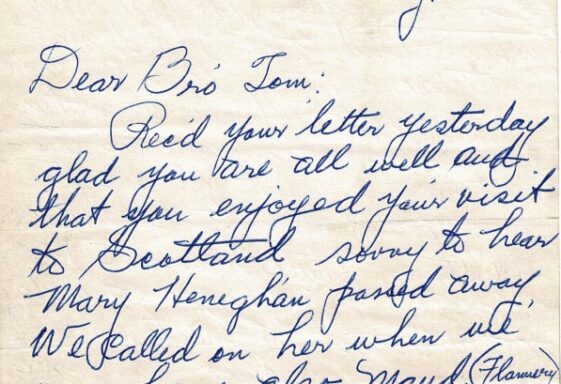 Dear Bro Tom:
Rec'd your letter yesterday
glad you are all well and
that you enjoyed your visit
to Scotland sorry to hear
Mary Heneghan passed away,
We called on her when we
also Maud (Flannery)